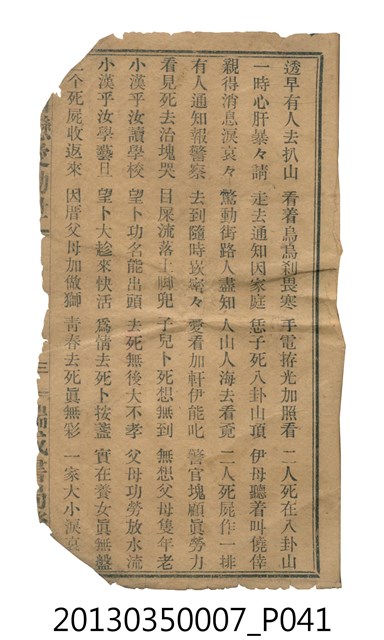 透早有人去扒山　看着烏烏剎畏寒　手電拵光加照看　二人死在八卦山
一時心肝暴々請　走去通知因家庭　恁子死八卦山頂　伊母聽着叫僥倖
親得消息淚哀々　驚動街路人盡知　人山人海去看覔　二人死屍作一排
有人通知報警察　去到隨時崁密々　愛看加軒伊能叱　警官塊顧眞勞力
看見死去治塊哭　目屎流落上脚兜　子兒卜死想無到　無想父母隻年老
小漢乎汝讀學校　望卜功名能出頭　去死無後大不孝　父母功勞放水流
小漢乎汝學藝旦　望卜大趁來快活　爲情去死卜按盞　實在養女眞無盤
二个死屍收返來　因厝父母加做獅　靑春去死眞無彩　一家大小淚哀
瑞成書局
20130350007_P041